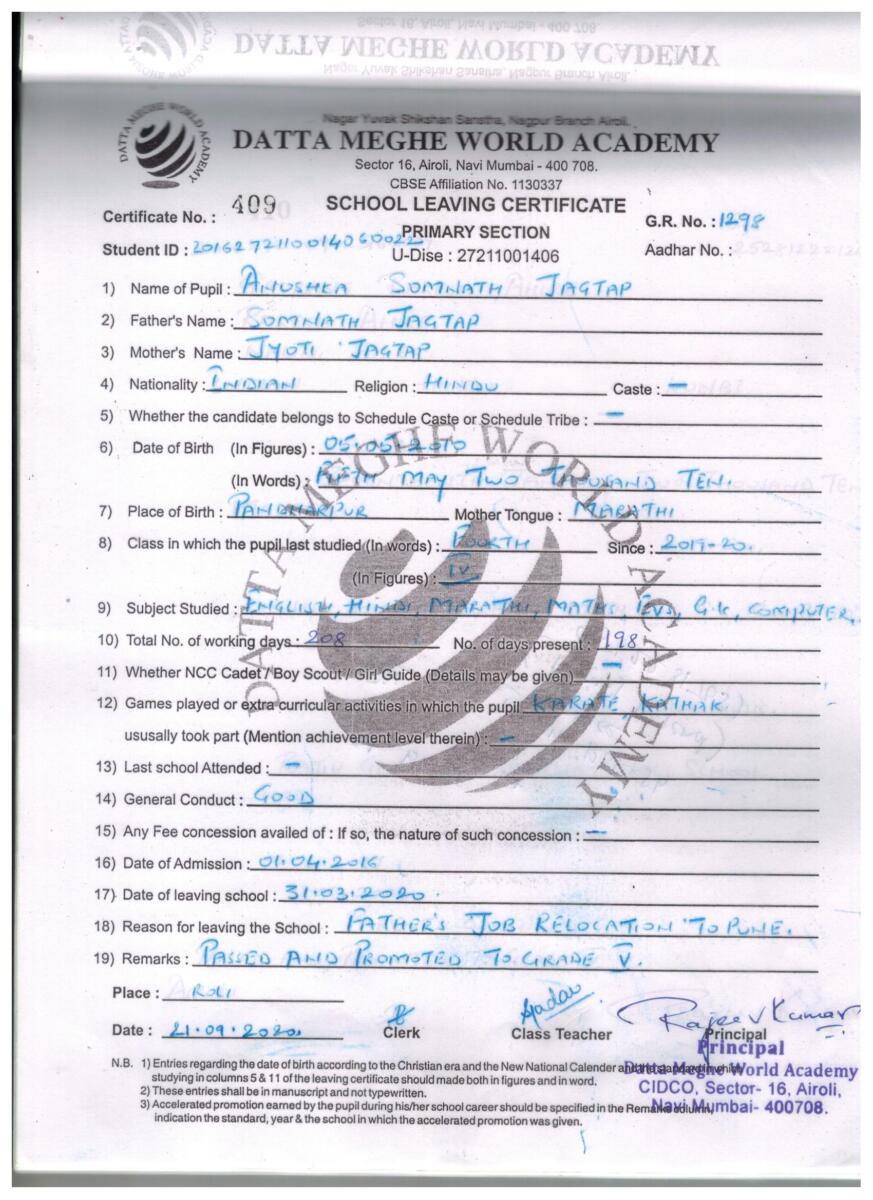 Nagar Yuvak Shikshan Sanstha, Nagpur Branch Airoli.
DATTA MEGHE WORLD ACADEMY
Sector 16, Airoli, Navi Mumbai - 400 708.
CBSE Affiliation No. 1130337
Certificate No. : 409 SCHOOL LEAVING CERTIFICATE G.R. No. : 1298
PRIMARY SECTION
Student ID : 2016272110014060022 U-Dise : 27211001406 Aadhar No. :
1) Name of Pupil : ANUSHKA SOMNATH JAGTAP
2) Father's Name : SOMNATH JAGTAP
3) Mother's Name : JYOTI JAGTAP
4) Nationality : INDIAN Religion : HINDU Caste : -
5) Whether the candidate belongs to Schedule Caste or Schedule Tribe : -
6) Date of Birth (In Figures) : 05.05.2010
(In Words) : FIFTH MAY TWO THOUSAND TEN.
7) Place of Birth : PANDHARPUR Mother Tongue : MARATHI
8) Class in which the pupil last studied (In words) : FOURTH Since : 2019-20.
(In Figures) : IV
9) Subject Studied : ENGLISH, HINDI, MARATHI, MATHS, EVS, G.K, COMPUTER.
10) Total No. of working days : 208 No. of days present : 198
11) Whether NCC Cadet / Boy Scout / Girl Guide (Details may be given) -
12) Games played or extra curricular activities in which the pupil KARATE, KATHAK
ususally took part (Mention achievement level therein) : -
13) Last school Attended : -
14) General Conduct : GOOD
15) Any Fee concession availed of : If so, the nature of such concession : -
16) Date of Admission : 01.04.2016
17) Date of leaving school : 31.03.2020.
18) Reason for leaving the School : FATHER'S JOB RELOCATION TO PUNE.
19) Remarks : PASSED AND PROMOTED TO GRADE V.
Place : AROLI
Rajeev Kumar
Date : 21.09.2020. Clerk Class Teacher Principal
Principal
Datta Meghe World Academy
CIDCO, Sector- 16, Airoli,
Navi Mumbai- 400708.
N.B. 1) Entries regarding the date of birth according to the Christian era and the New National Calender and the standard in which
studying in columns 5 & 11 of the leaving certificate should made both in figures and in word.
2) These entries shall be in manuscript and not typewritten.
3) Accelerated promotion earned by the pupil during his/her school career should be specified in the Remarks column,
indication the standard, year & the school in which the accelerated promotion was given.
DATTA MEGHE WORLD ACADEMY